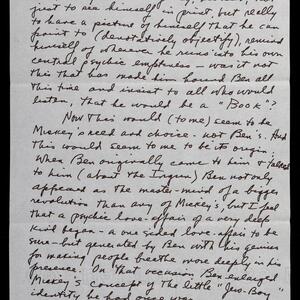 just to see himself in print, but really
to have a picture of himself that he can
point to (denotatively, objectify), remind
himself of wherever he runs into his own
central psychic emptiness - was it not
this that has made him hound Ben all
this time and insist to all who would
listen, that he would be a "Book"?
Now this would (to me) seem to be
Mickey's need and choice - not Ben's. And
this would seem to me to be its origin.
When Ben originally came to him & talked
to him (about the Irgun) Ben not only
appeared as the master-mind of a bigger
revolution than any of Mickey's, but I feel
that a psychic love-affair of a very deep
kind began - a one sided love-affair to be
sure - but generated by Ben with his genius
for making people breathe more deeply in his
presence. On that occasion Ben enlarged
Mickey's concept of the little "Jew-Boy"
identity he had once was